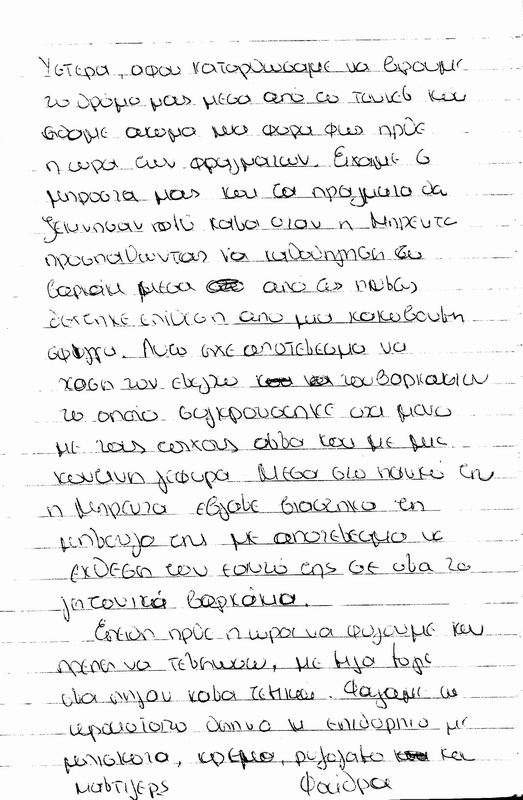 Υστερα, αφου καταφέραμε να βρουμε
το δρομο μας μεσα απο το τουνελ και
ειδαμε ακομα μια φορα φως ηρθε
η ωρα των φραγματων. Ειχαμε 6
μπροστα μας και τα πραγματα θα
ξεκινησαν πολυ καλα οταν η Μπρεντα
προσπαθωντας να καθοδηγηση το
βαρκακι μεσα απο τις πυλες
δεχτηκε επιθεση απο μια κακοβουλη
σφηγγα. Αυτο ειχε αποτελεσμα να
χαση τον ελεγχο του βαρκακιου
το οποιο συγκρουστηκε οχι μονο
με τους τοιχους αλλα και με μια
κοντινη γεφυρα. Μεσα στο πανικο της
η Μπρεντα εβγαλε βιαστικα τη
μπλουζα της με αποτελεσμα να
εκθεση τον εαυτο της σε ολα τα
γητονικά βαρκάκια.
Επειδη ηρθε η ωρα να φυγουμε και
πρεπει να τελειωσω, με λιγα λογια
ολα πηγαν καλα τελικα. Φαγαμε το
ωραιοτατο δειπνο κ επιδορπιο με
μπισκοτα, κρεμα, ρυζογαλο και
μαστιχες Φαιδρα